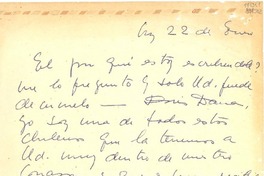 22 de Enero
El por qué estoy escribiendole?
me lo pregunto y solo Ud. puede
decirmelo — Doris Dana.
yo soy una de todos estos
chilenos que la tenemos a
Ud. muy dentro de nuestro